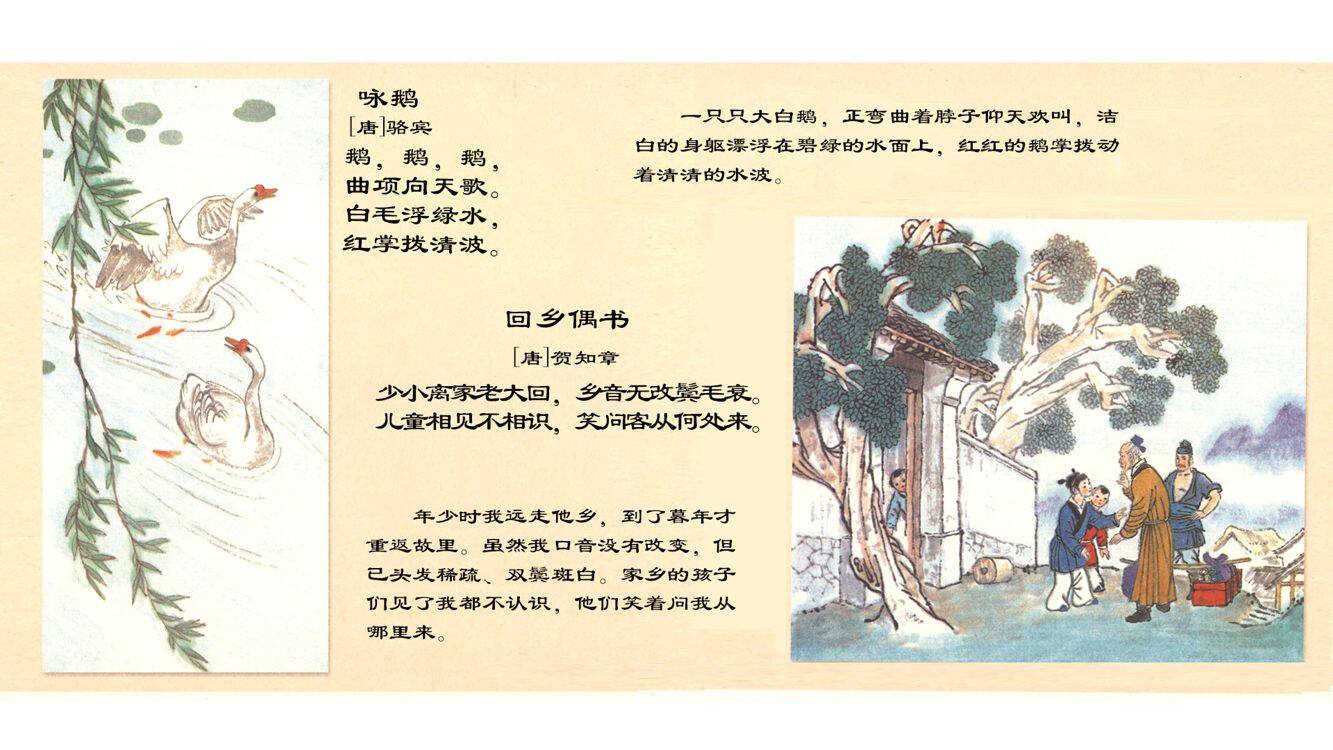 咏鹅
[唐]骆宾
鹅，鹅，鹅，
曲项向天歌。
白毛浮绿水，
红掌拨清波。
一只只大白鹅，正弯曲着脖子仰天欢叫，洁
白的身躯漂浮在碧绿的水面上，红红的鹅掌拨动
着清清的水波。
回乡偶书
[唐]贺知章
少小离家老大回，乡音无改鬓毛衰。
儿童相见不相识，笑问客从何处来。
年少时我远走他乡，到了暮年才
重返故里。虽然我口音没有改变，但
已头发稀疏、双鬓斑白。家乡的孩子
们见了我都不认识，他们笑着问我从
哪里来。